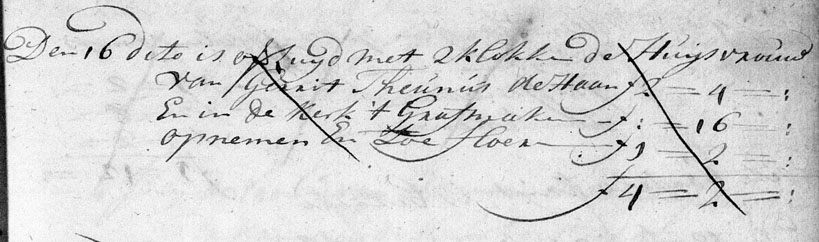 Den 16 dito is overluyd met 2 klokke de Huijsvrouw
van Gerrit Theunis de Haan f 2 = 4 = :
En in de kerk 't Graf maken f : = 16 = :
opnemen En Toe vloeren f 1 = 2 = :
f 4 = 2 = :